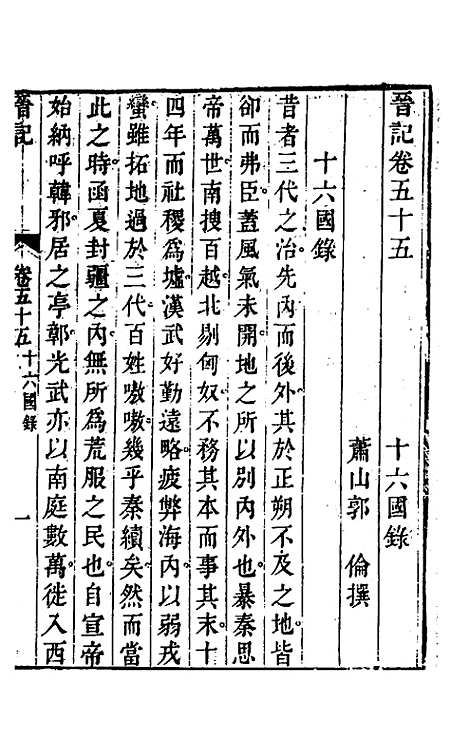 晉記卷五十五　十六國錄
蕭山郭　倫撰
十六國錄
昔者三代之治先內而後外其於正朔不及之地皆
卻而弗臣蓋風氣未開地之所以別內外也暴秦思
帝萬世南搜百越北剔匈奴不務其本而事其末十
四年而社稷為墟漢武好勤遠略疲弊海內以弱戎
蠻雖拓地過於三代百姓嗷嗷幾乎秦續矣然而當
此之時函夏封疆之內無所為荒服之民也自宣帝
始納呼韓邪居之亭鄣光武亦以南庭數萬徙入西
晉記　卷五十五十六國錄　一